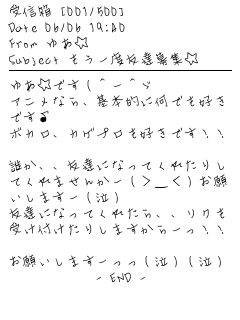 受信箱 [001/500]
Date 06/06 19:40
From ゆあ☆
Subject もう一度友達募集☆
ゆあ☆です(＾ー＾ゞ
アニメなら、基本的に何でも好き
です♪
ボカロ、カゲプロも好きです！！
誰か、、友達になってくれたりし
てくれませんかー(＞＿＜)お願
いしますー(泣)
友達になってくれたら、、リクを
受け付けたりしますからーっ！！
お願いしますーっっ(泣)(泣)
- END -